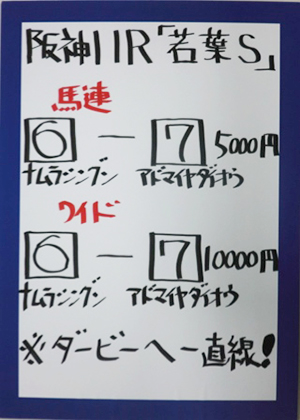 阪神11R「若葉S」
馬連
6 ー 7 5000円
ナムラシングン アドマイヤダイオウ
ワイド
6 ー 7 10000円
ナムラシングン アドマイヤダイオウ
※ダービーへ一直線!